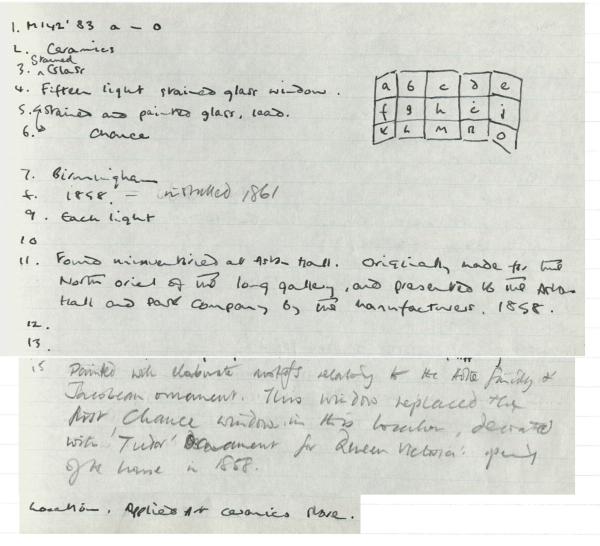 1. M142'83 a – o
2. Ceramics
Stained
3. ^Glass
4. Fifteen light stained glass window.
5. Stained and painted glass, lead.
6. Chance
a b c d e
f g h i j
K L M N O
7. Birmingham
8. 1858. = installed 1861
9. Each light
10
11. Found uninventoried at Aston Hall. Originally made for the
North oriel of the long gallery, and presented to the Aston
Hall and Park Company by the manufacturers, 1858.
12.
13.
15 Painted with elaborate motifs relating to the Holte family &
Jacobean ornament. This window replaced the
first Chance window in this location, decorated
with 'Tudor' Ornament for Queen Victoria's opening
of the house in 1858.
Location. Applied Art ceramics store.